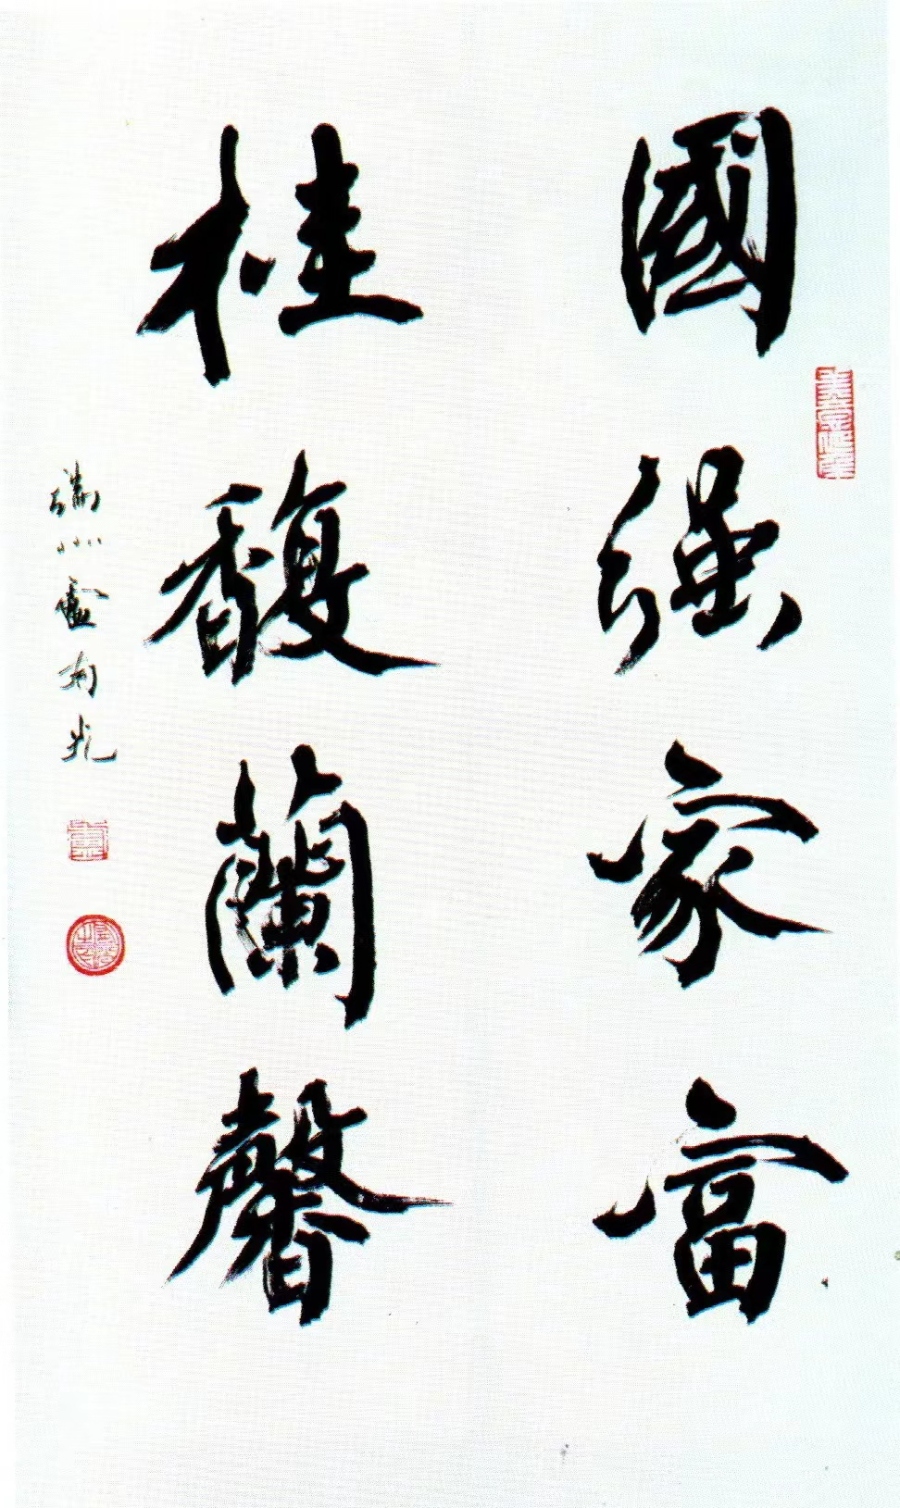 國强家富
桂馥蘭馨
瑞州